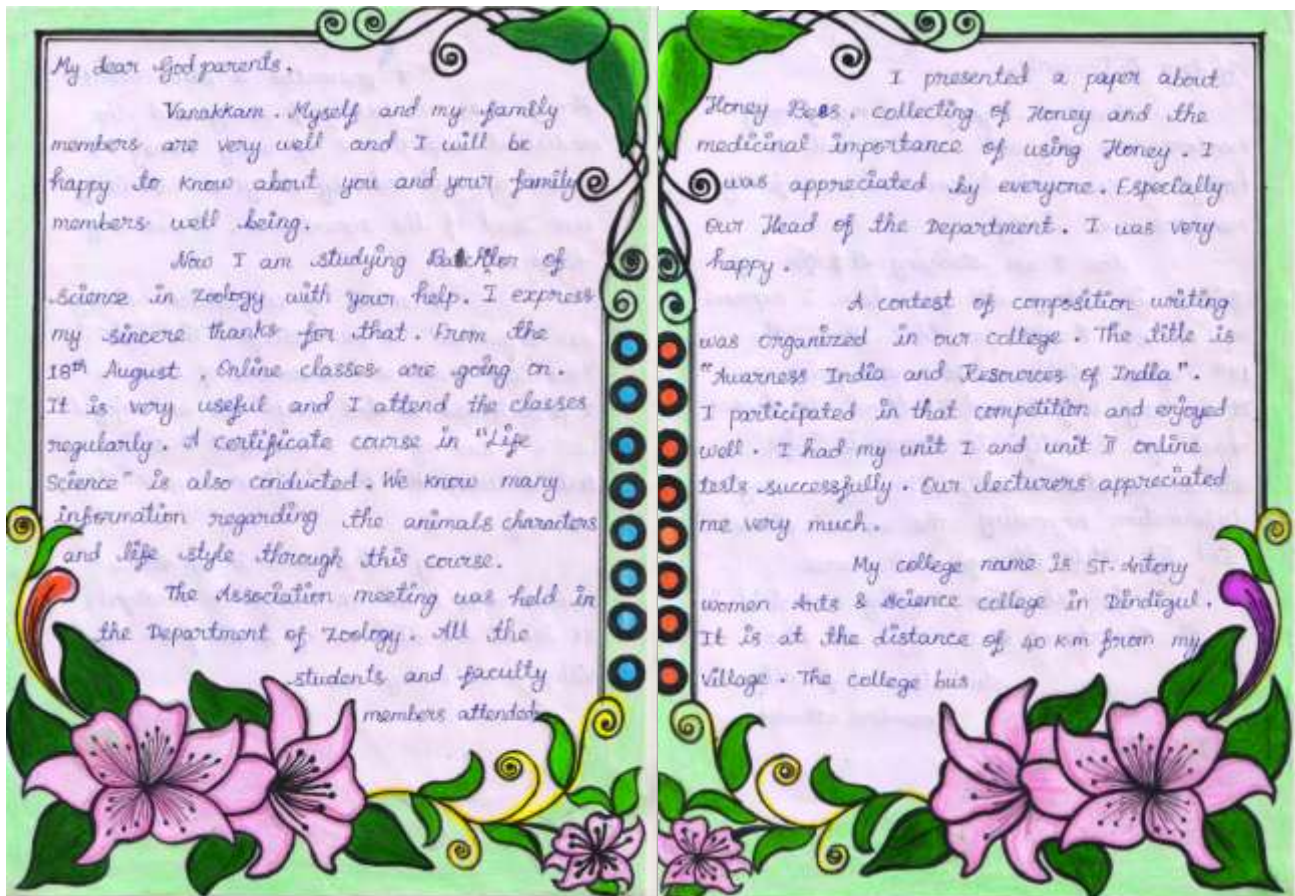 My dear God parents.
Vanakkam. Myself and my family
members are very well and I will be
happy to know about you and your family
members well being.
Now I am studying Batchlor of
science in Zoology with your help. I express
my sincere thanks for that. From the
18th August, Online classes are going on.
It is very useful and I attend the classes
regularly. A certificate course in "Life
Science" is also conducted. We know many
information regarding the animals characters
and life style through this course.
The Association meeting was held in
the Department of Zoology. All the
students and faculty
members attended.
I presented a paper about
Honey Bees, collecting of Honey and the
medicinal importance of using Honey. I
was appreciated by everyone. Especially
our Head of the Department. I was very
happy.
A contest of composition writing
was organized in our college. The title is
"Awarness India and Resources of India".
I participated in that competition and enjoyed
well. I had my unit I and unit II online
tests successfully. Our lecturers appreciated
me very much.
My college name is ST. Antony
women Arts & Science college in Dindigul.
It is at the distance of 40 km from my
village. The college bus